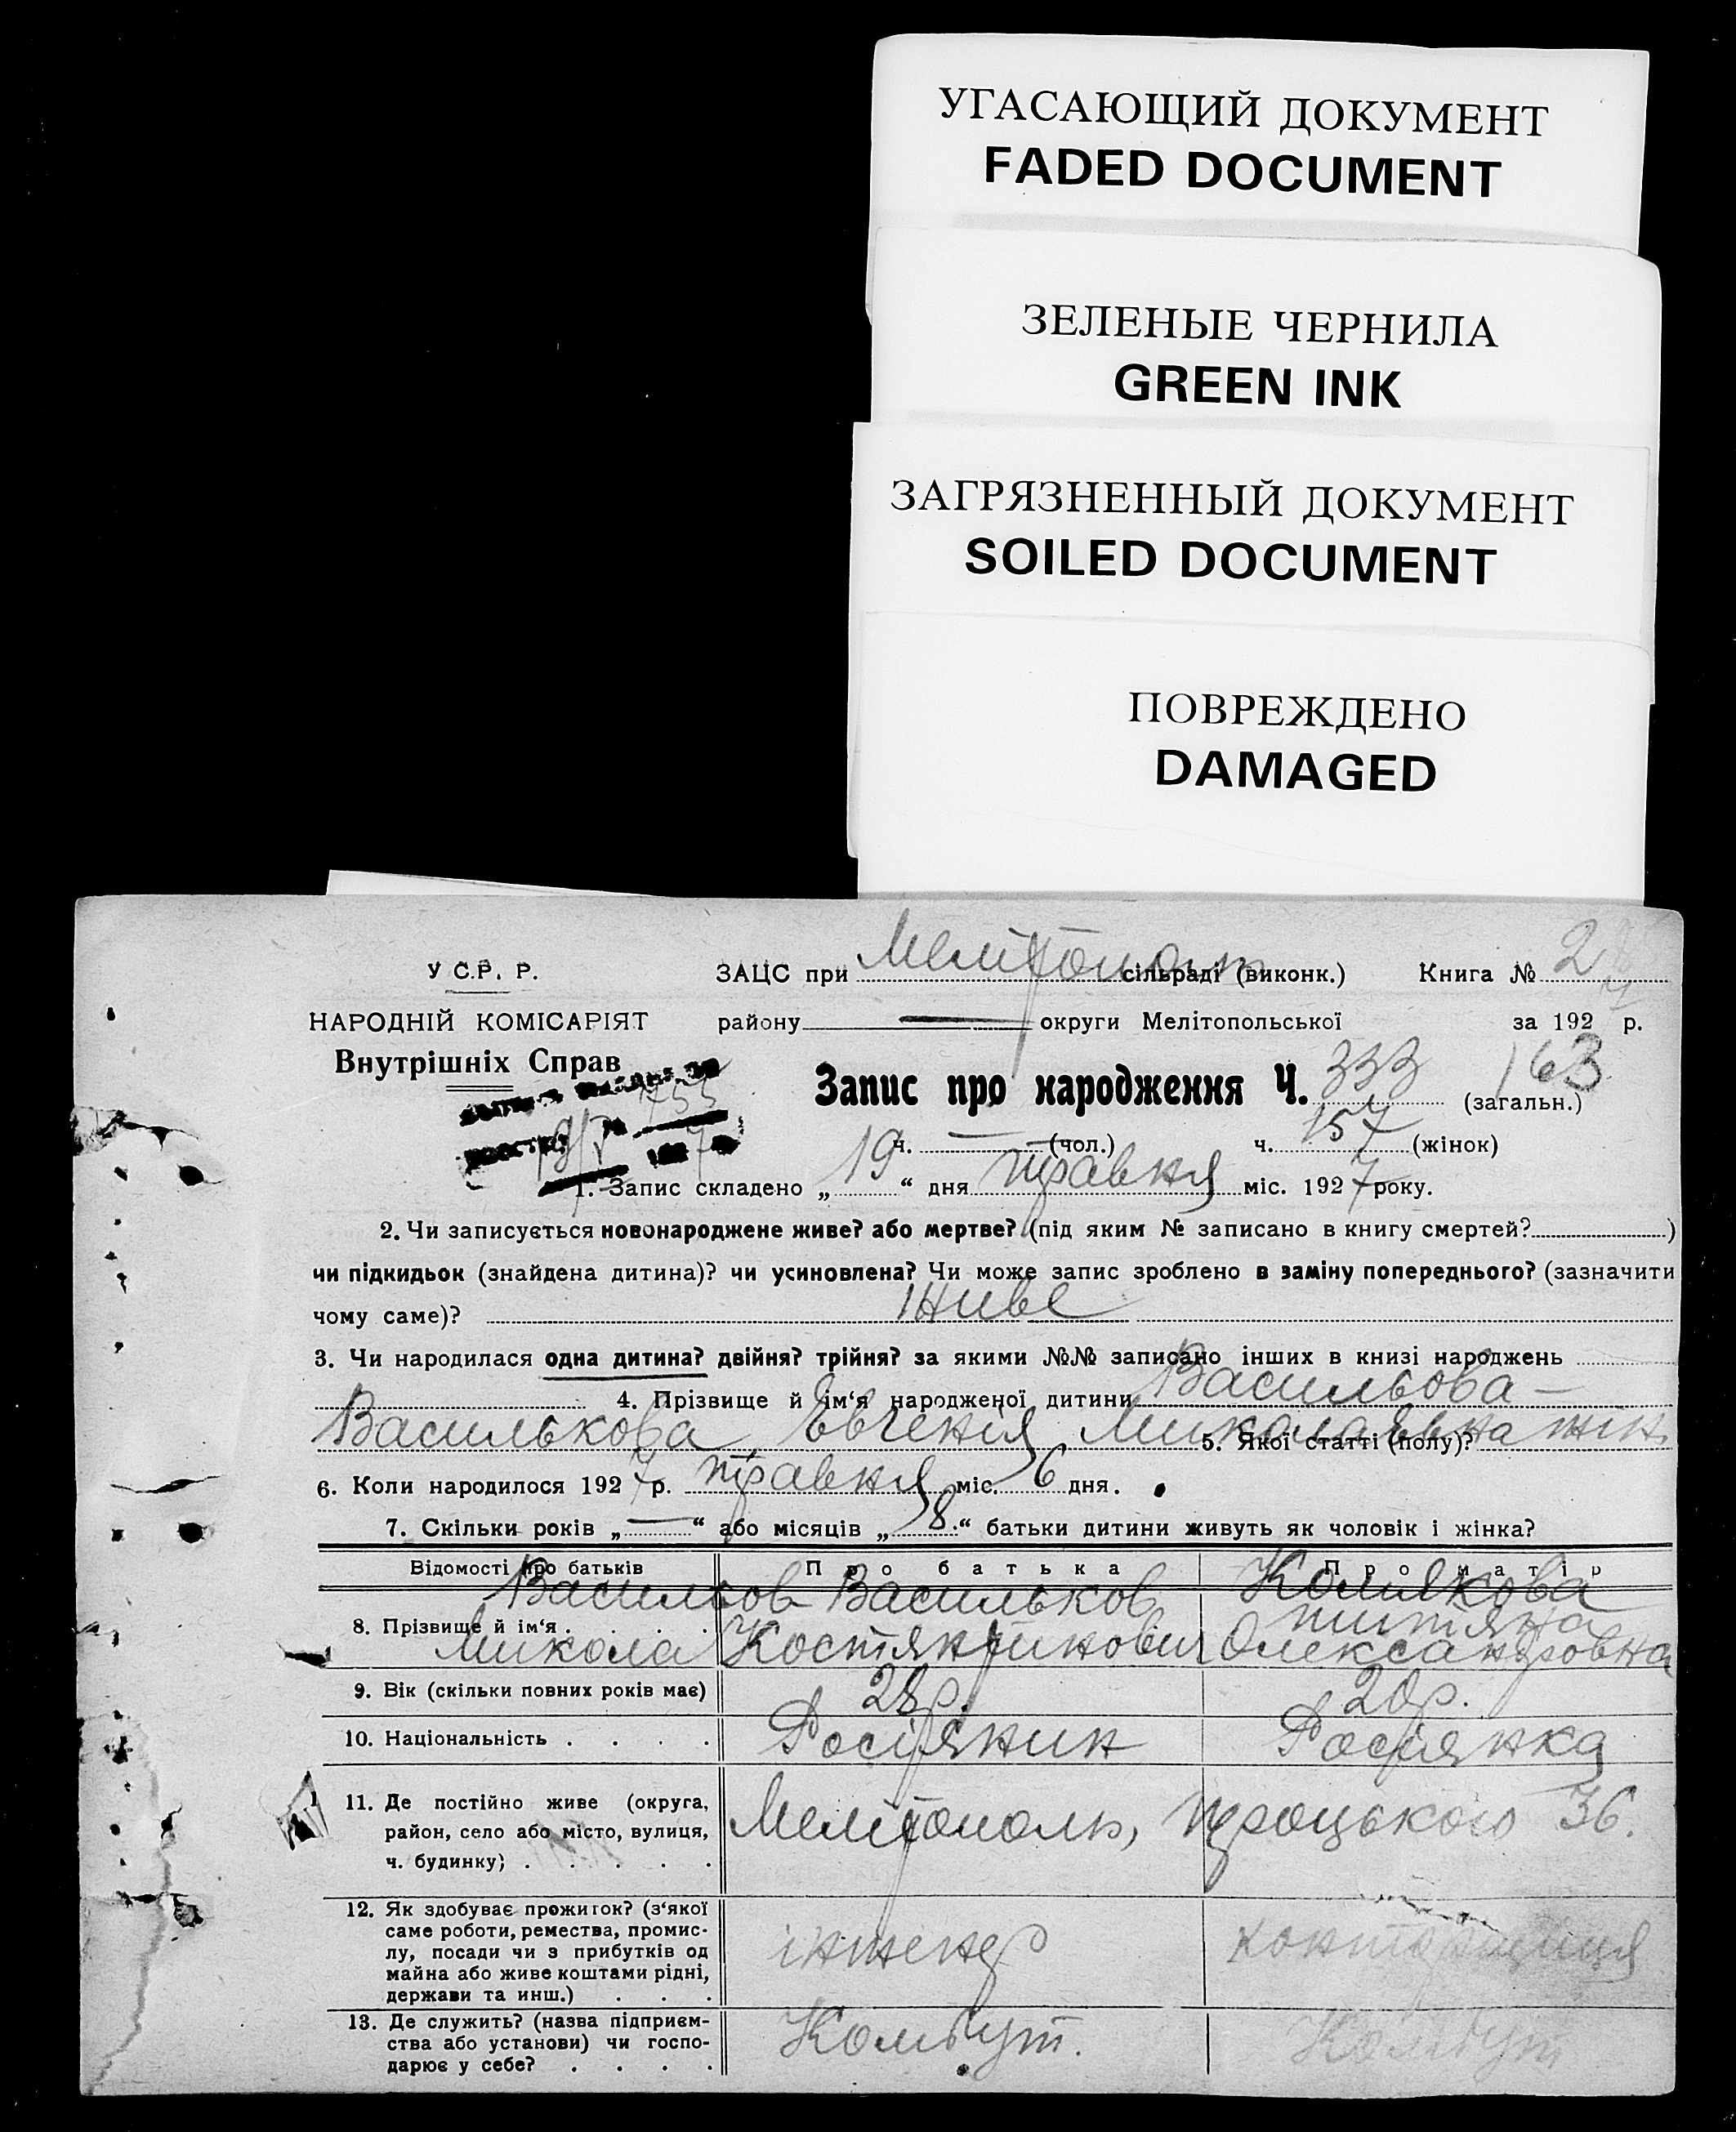 УГАСАЮЩИЙ ДОКУМЕНТ
FADED DOCUMENT
ЗЕЛЕНЫЕ ЧЕРНИЛА
GREEN INK
ЗАГРЯЗНЕННЫЙ ДОКУМЕНТ
SOILED DOCUMENT
ПОВРЕЖДЕНО
DAMAGED
У С.Р. Р. ЗАЦС при сільраді (виконк.) Книга № 2
НАРОДНІЙ КОМІСАРІЯТ району — округи Мелітопольської за 192 р.
Внутрішніх Справ
Запис про народження Ч. 333 (загальн.) 163
755
ч. — (чол.) ч. 157 (жінок)
1. Запис складено „ 19 “ дня травня міс. 1927 року.
2. Чи записується новонароджене живе? або мертве? (під яким № записано в книгу смертей? )
чи підкидьок (знайдена дитина)? чи усиновлена? Чи може запис зроблено в заміну попереднього? (зазначити
чому саме)? живе
3. Чи народилася одна дитина? двійня? трійня? за якими №№ записано інших в книзі народжень
4. Прізвище й ім‘я народженої дитини Васильова -
Василькова Евгенія Миколаївна 5. Якої статті (полу)? жін.
6. Коли народилося 1927 р. травня міс. 6 дня.
7. Скільки років „ — “ або місяців „ 8. “ батьки дитини живуть як чоловік і жінка?
Відомості про батьків Про батька Про матір
Васильов Васильков Комякова
8. Прізвище й ім‘я . . . . . Микола Костянтинович Титяна Олександровна
9. Вік (скільки повних років має) 28р. 20р.
10. Національність . . . . Росіянин Росіянка
11. Де постійно живе (округа,
район, село або місто, вулиця, Мелітополь, Троцького 36.
ч. будинку) . . . . .
12. Як здобуває прожиток? (з‘якої
саме роботи, ремества, промис-
лу, посади чи з прибутків од інженер конторщиця
майна або живе коштами рідні,
держави та инш.) . . .
13. Де служить? (назва підприєм-
ства або установи) чи госпо- Комбут. Комбут
дарює у себе? . . . .